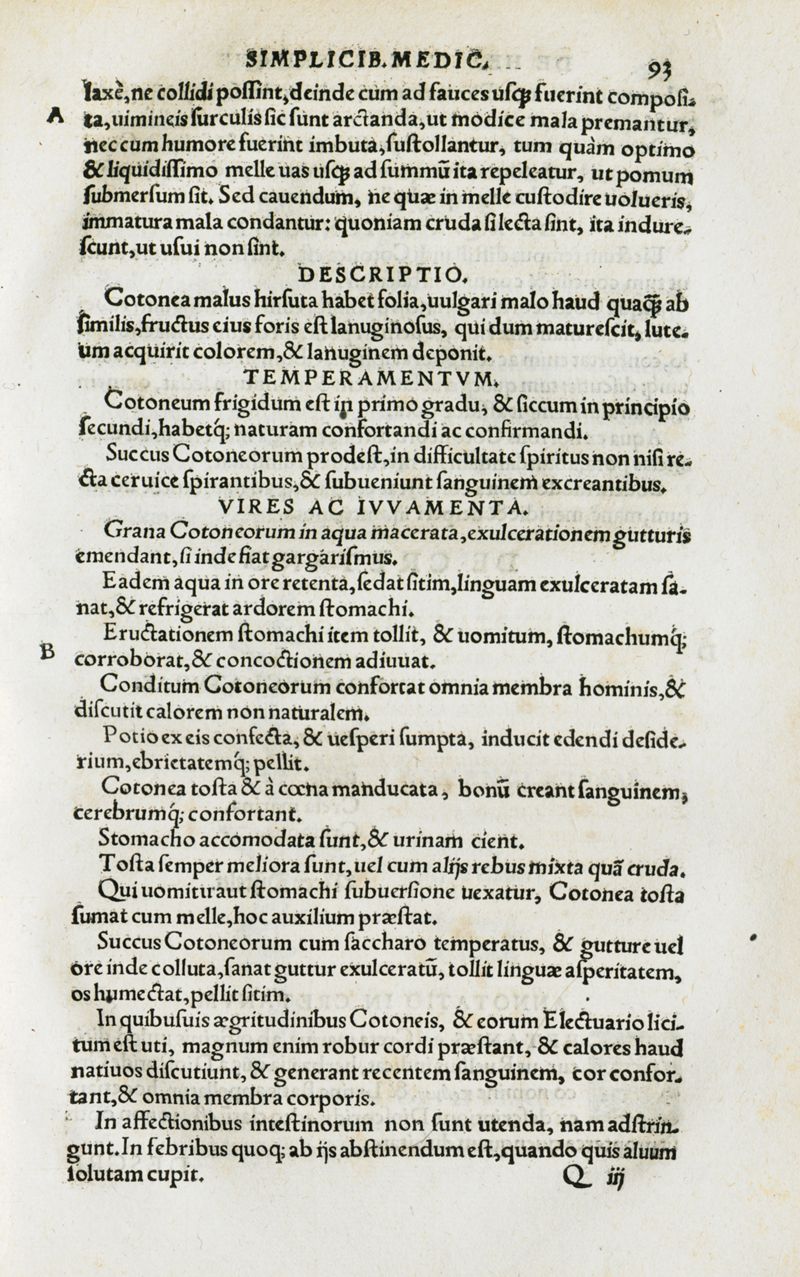 SIMPLICIB. MEDIC. 93
laxè, ne collidi poſſint, deinde cum ad fauces uſq; fuerint compoſi-
A ta, uimineis ſurculis ſic ſunt arctanda, ut modice mala premantur,
nec cum humore fuerint imbuta, ſuſtollantur, tum quàm optimo
& liquidiſſimo melle uas uſq; ad ſummũ ita repeleatur, ut pomum
ſubmerſum ſit. Sed cauendum, ne quæ in melle cuſtodire uolueris,
immatura mala condantur: quoniam cruda ſi lecta ſint, ita indure-
ſcunt, ut uſui non ſint.
DESCRIPTIO.
Cotonea malus hirſuta habet folia, uulgari malo haud quaq̃ ab
ſimilis, fructus eius foris eſt lanuginoſus, qui dum matureſcit, lute-
um acquirit colorem, & lanuginem deponit.
TEMPERAMENTVM.
Cotoneum frigidum eſt in primo gradu, & ſiccum in principio
ſecundi, habetq́; naturam confortandi ac confirmandi.
Succus Cotoneorum prodeſt, in difficultate ſpiritus non niſi re-
cta ceruice ſpirantibus, & ſubueniunt ſanguinem excreantibus.
VIRES AC IVVAMENTA.
Grana Cotoneorum in aqua macerata, exulcerationem gutturis
emendant, ſi inde fiat gargariſmus.
Eadem aqua in ore retenta, ſedat ſitim, linguam exulceratam ſa-
nat, & refrigerat ardorem ſtomachi.
Eructationem ſtomachi item tollit, & uomitum, ſtomachumq́;
B corroborat, & concoctionem adiuuat.
Conditum Cotoneorum confortat omnia membra hominis, &
diſcutit calorem non naturalem.
Potio ex eis confecta, & ueſperi ſumpta, inducit edendi deſide-
rium, ebrietatemq́; pellit.
Cotonea toſta & à cœna manducata, bonũ creant ſanguinem,
cerebrumq́; confortant.
Stomacho accomodata ſunt, & urinam cient.
Toſta ſemper meliora ſunt, uel cum alijs rebus mixta quã cruda.
Qui uomitu aut ſtomachi ſubuerſione uexatur, Cotonea toſta
ſumat cum melle, hoc auxilium præſtat.
Succus Cotoneorum cum ſaccharo temperatus, & gutture uel
ore inde colluta, ſanat guttur exulceratũ, tollit linguæ aſperitatem,
os humectat, pellit ſitim.
In quibuſuis ægritudinibus Cotoneis, & eorum Electuario lici-
tum eſt uti, magnum enim robur cordi præſtant, & calores haud
natiuos diſcutiunt, & generant recentem ſanguinem, cor confor-
tant, & omnia membra corporis.
In affectionibus inteſtinorum non ſunt utenda, nam adſtrin-
gunt. In febribus quoq; ab ijs abſtinendum eſt, quando quis aluum
ſolutam cupit. Q iij